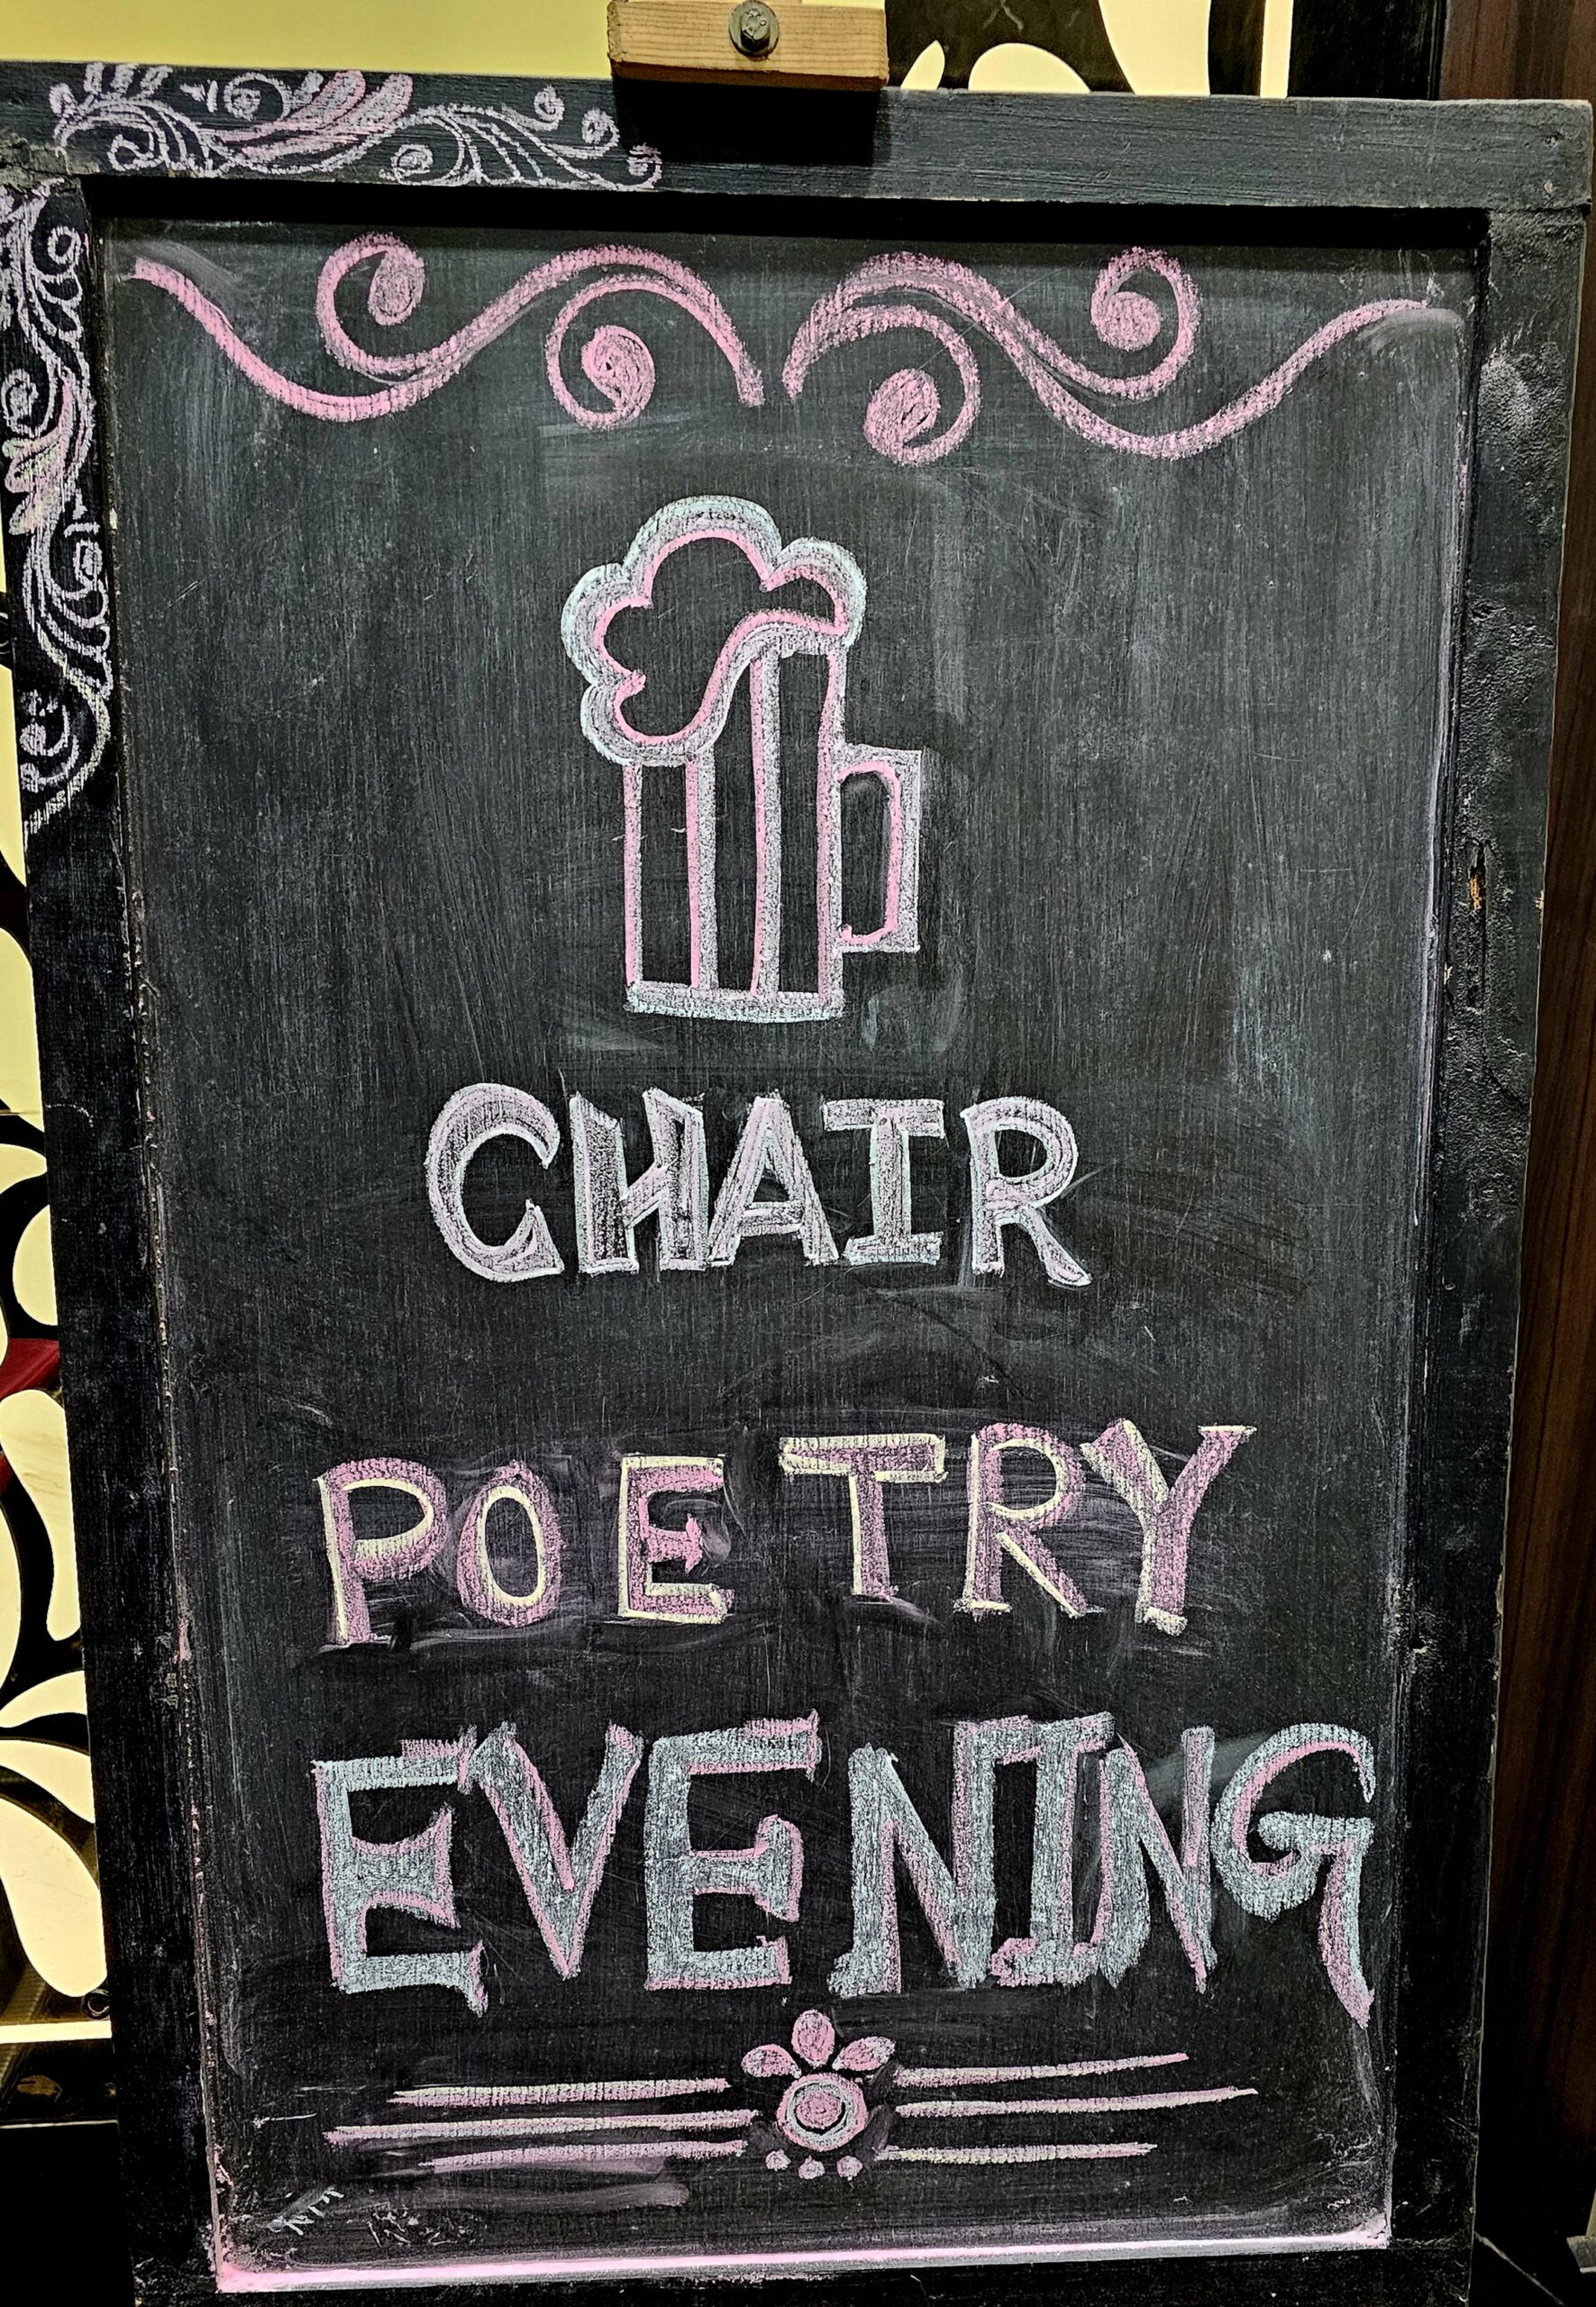 CHAIR
POETRY
EVENING